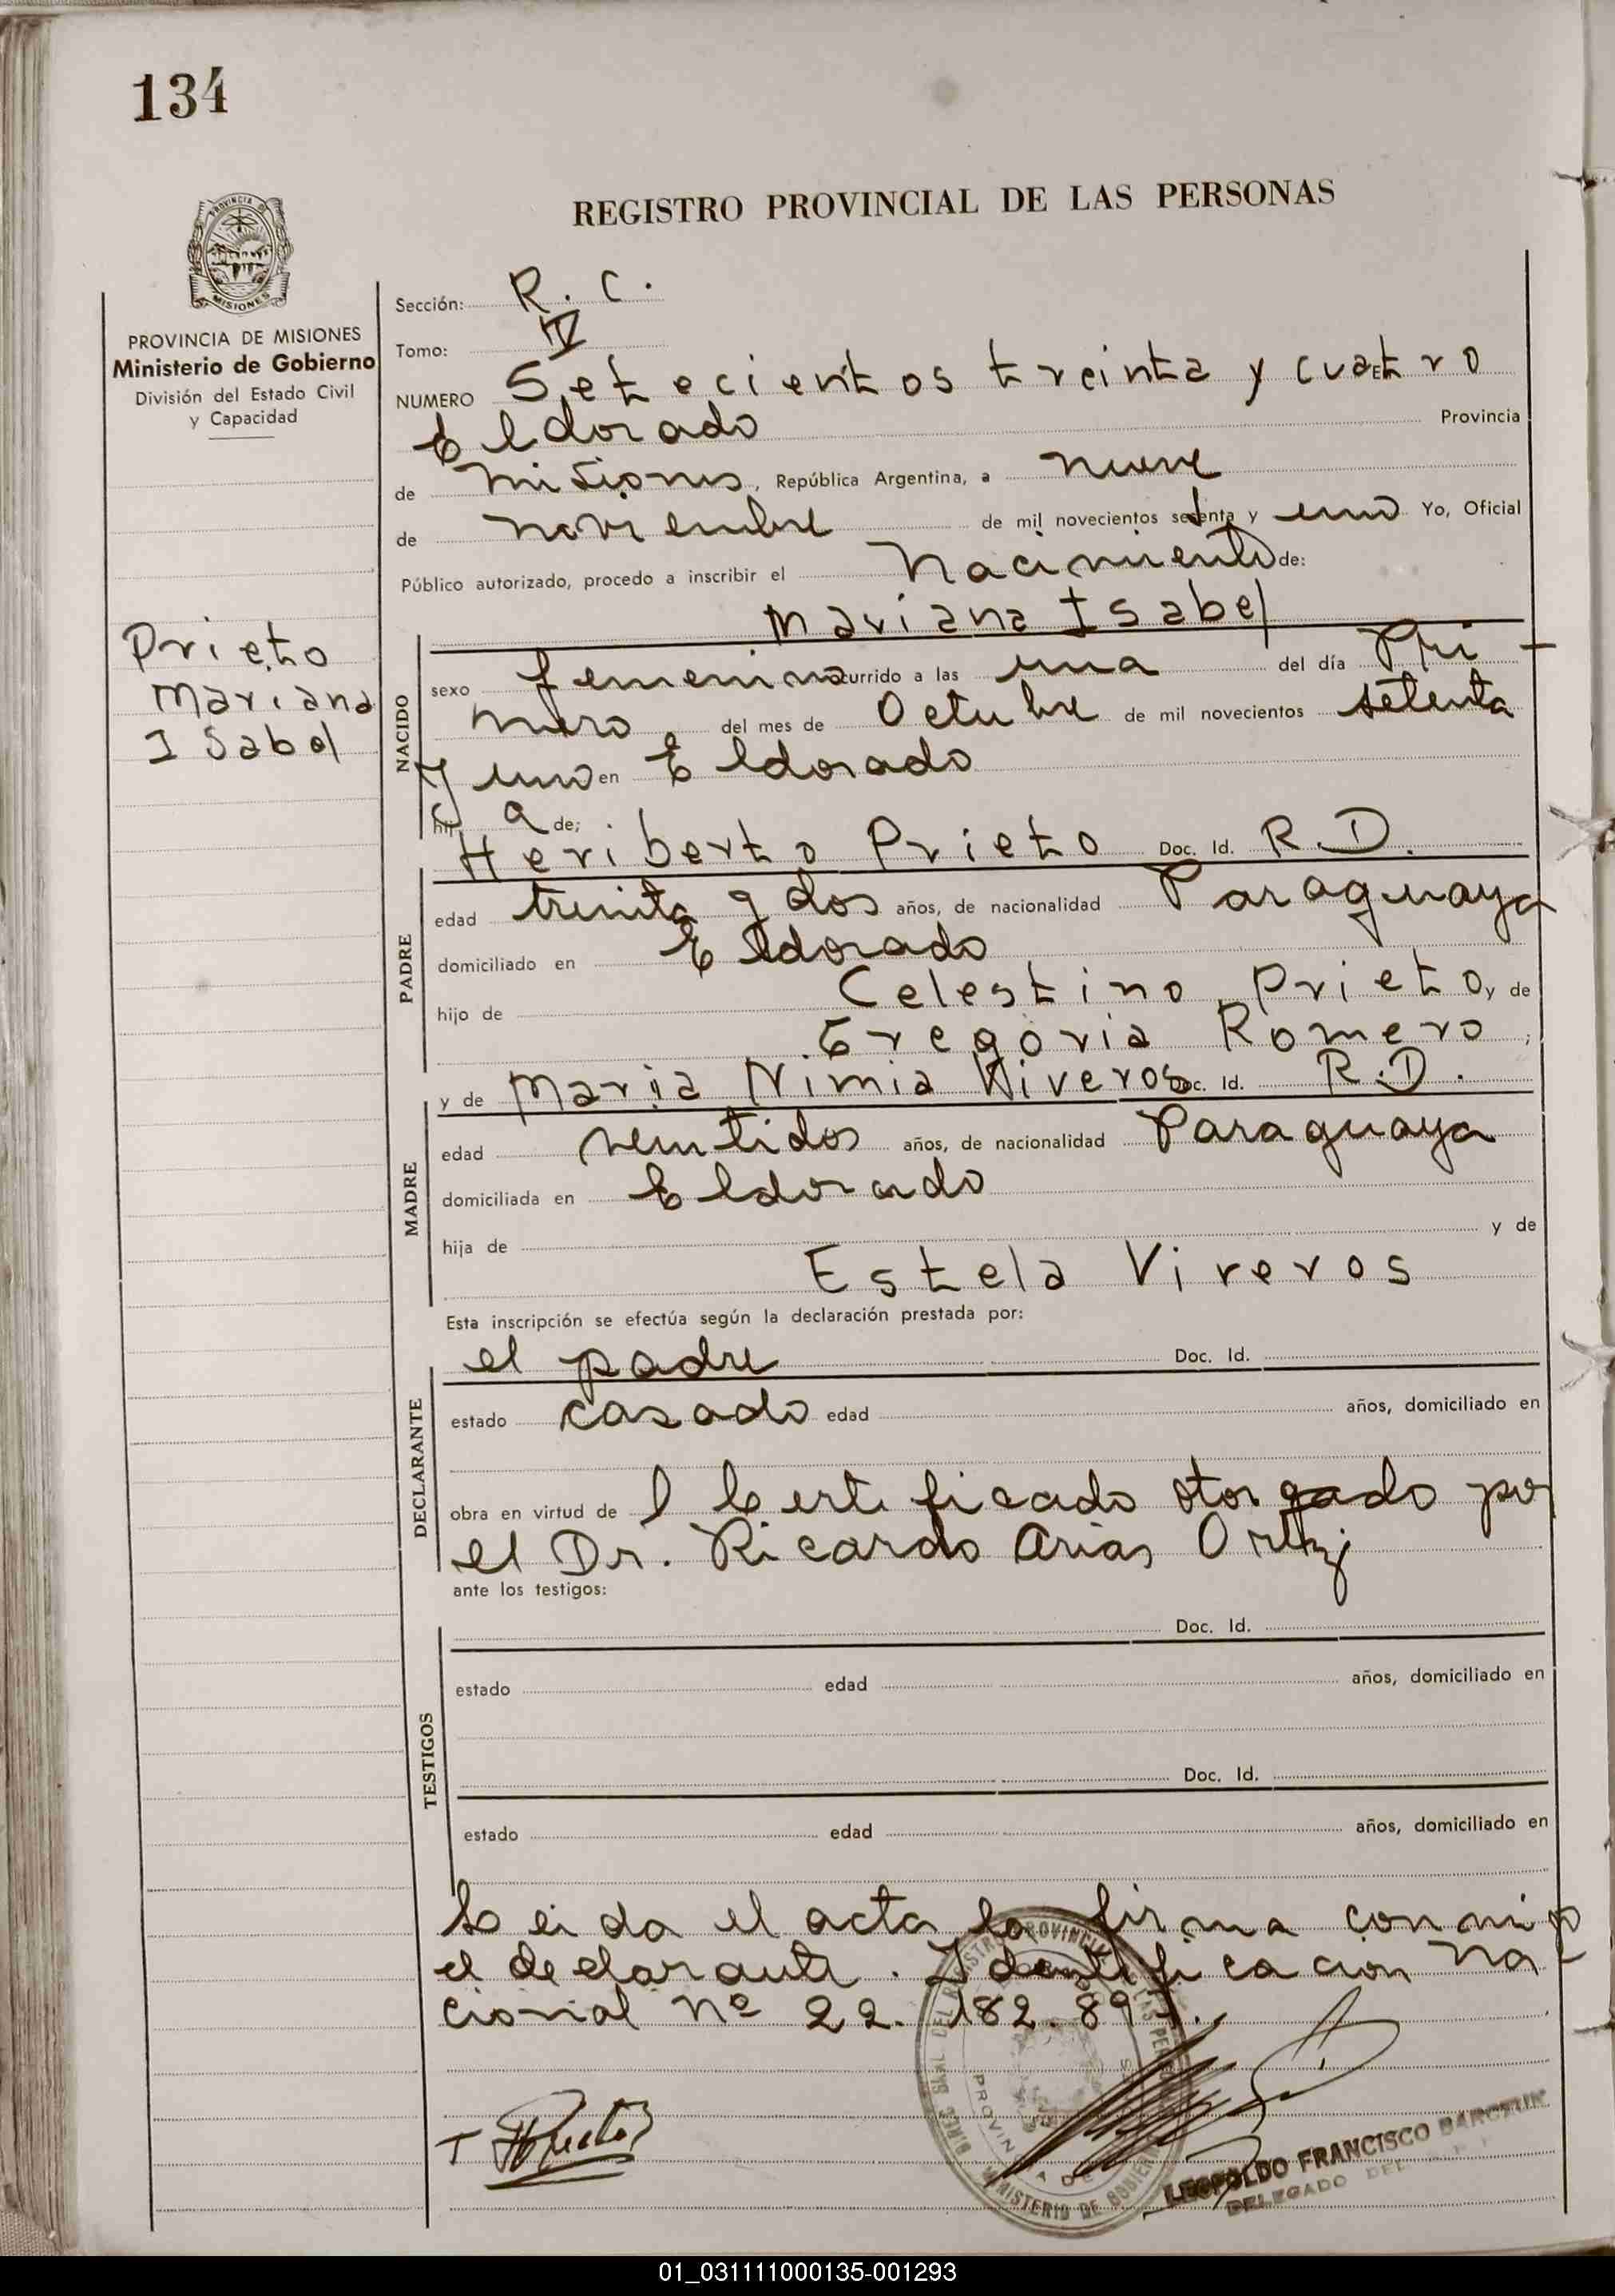 134
REGISTRO PROVINCIAL DE LAS PERSONAS
PROVINCIA DE MISIONES
MISIONES
PROVINCIA DE MISIONES
Ministerio de Gobierno
División del Estado Civil
y Capacidad
Prieto
Mariana
Isabel
Sección: R. C.
Tomo: IV
NUMERO Setecientos treinta y cuatro
Eldorado Provincia
de Misiones, República Argentina, a nueve
de noviembre de mil novecientos setenta y uno Yo, Oficial
Público autorizado, procedo a inscribir el Nacimiento de:
Mariana Isabel
NACIDO
sexo femenino ocurrido a las una del día Pri-
mero del mes de Octubre de mil novecientos setenta
y uno en Eldorado
hija de;
Heriberto Prieto Doc. Id. R.D.
PADRE
edad treinta y dos años, de nacionalidad Paraguaya
domiciliado en Eldorado
hijo de Celestino Prieto y de
Gregoria Romero;
y de Maria Nimia Viveros Doc. Id. R.D.
MADRE
edad veintidos años, de nacionalidad Paraguaya
domiciliada en Eldorado
hija de y de
Estela Viveros
Esta inscripción se efectúa según la declaración prestada por:
el padre Doc. Id.
DECLARANTE
estado casado edad años, domiciliado en
obra en virtud de l Certificado otorgado por
el Dr. Ricardo Arias Ortiz
ante los testigos:
Doc. Id.
TESTIGOS
estado edad años, domiciliado en
Doc. Id.
estado edad años, domiciliado en
Leida el acta la firma conmigo
el declarante. Identificacion Na
cional Nº 22.182.897.
LEOPOLDO FRANCISCO BARCZUK
DELEGADO DEL
01_031111000135-001293